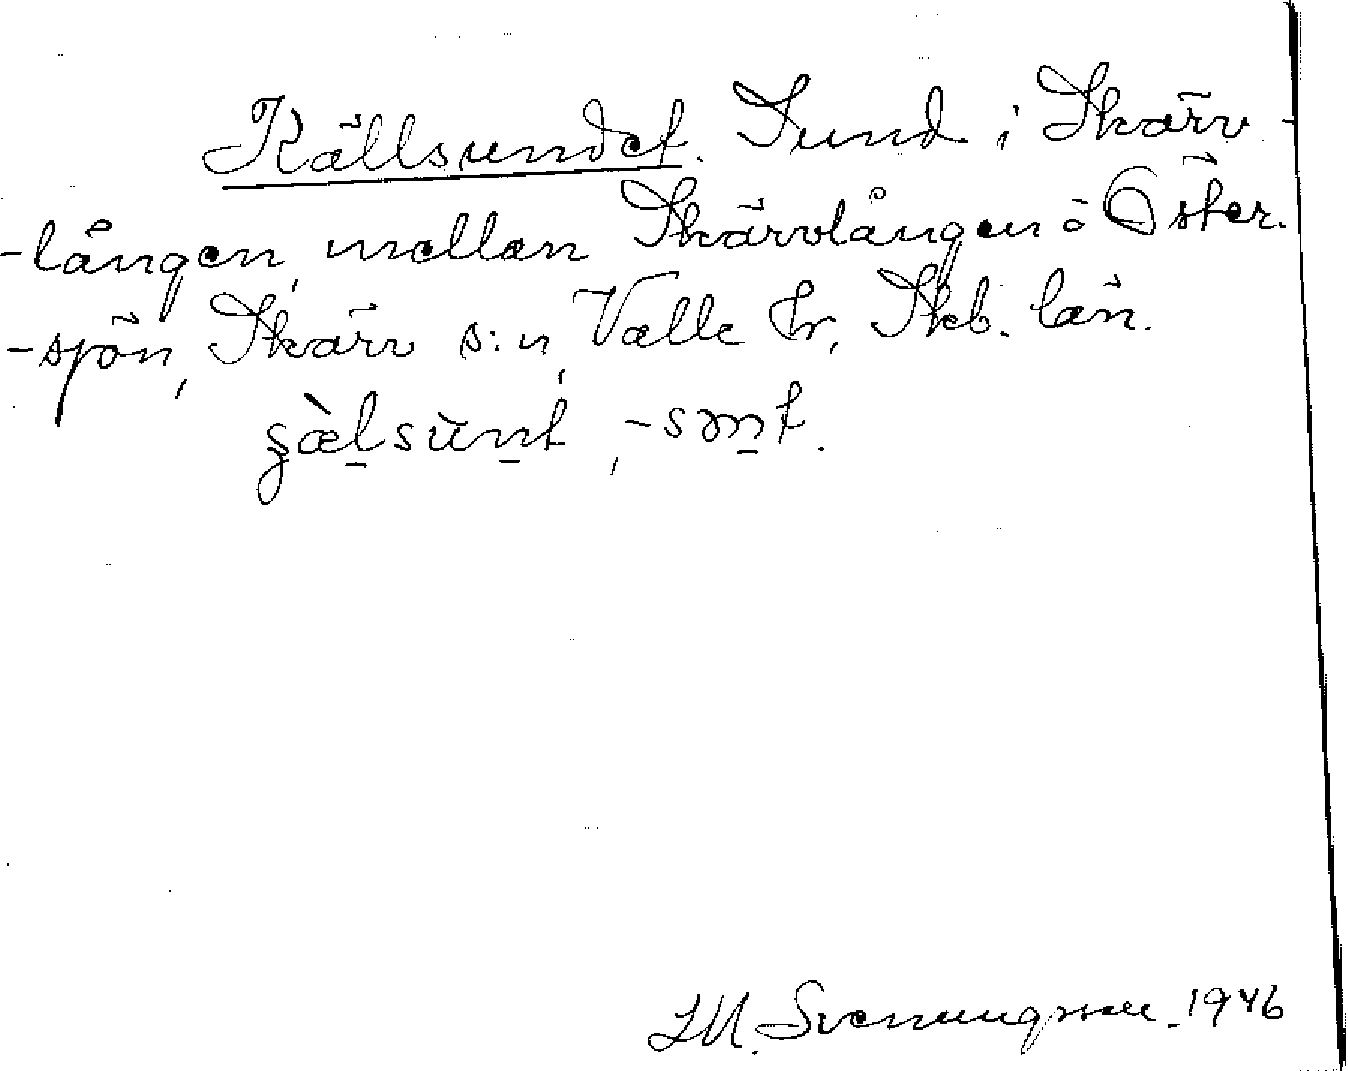 Källsundet. Sund i Skärv-
-lången, mellan Skärvlången o Öster-
-sjön, Skärv s:n, Valle hr, Skb. län.
-sm̲t.
L M. Svenungsson. 1946